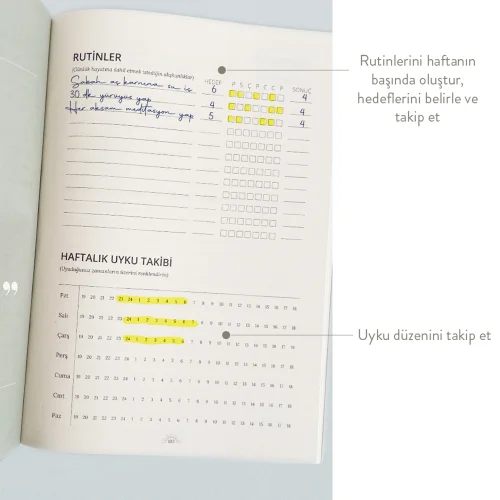 RUTİNLER
(Günlük hayatına dahil etmek istediğin alışkanlıklar)
HEDEF P S Ç P C C P SONUÇ
Sabah aç karnına su iç 6 4
30 dk yürüyüş yap 4 4
Her akşam meditasyon yap 5 4
Rutinlerini haftanın
başında oluştur,
hedeflerini belirle ve
takip et
HAFTALIK UYKU TAKİBİ
(Uyuduğunuz zamanların üzerini renklendirin)
Pzt 19 20 21 22 23 24 1 2 3 4 5 6 7 8 9 10 11 12 13 14 15 16 17 18
Salı 19 20 21 22 23 24 1 2 3 4 5 6 7 8 9 10 11 12 13 14 15 16 17 18
Çarş 19 20 21 22 23 24 1 2 3 4 5 6 7 8 9 10 11 12 13 14 15 16 17 18
Perş 19 20 21 22 23 24 1 2 3 4 5 6 7 8 9 10 11 12 13 14 15 16 17 18
Cuma 19 20 21 22 23 24 1 2 3 4 5 6 7 8 9 10 11 12 13 14 15 16 17 18
Cmt 19 20 21 22 23 24 1 2 3 4 5 6 7 8 9 10 11 12 13 14 15 16 17 18
Paz 19 20 21 22 23 24 1 2 3 4 5 6 7 8 9 10 11 12 13 14 15 16 17 18
Uyku düzenini takip et